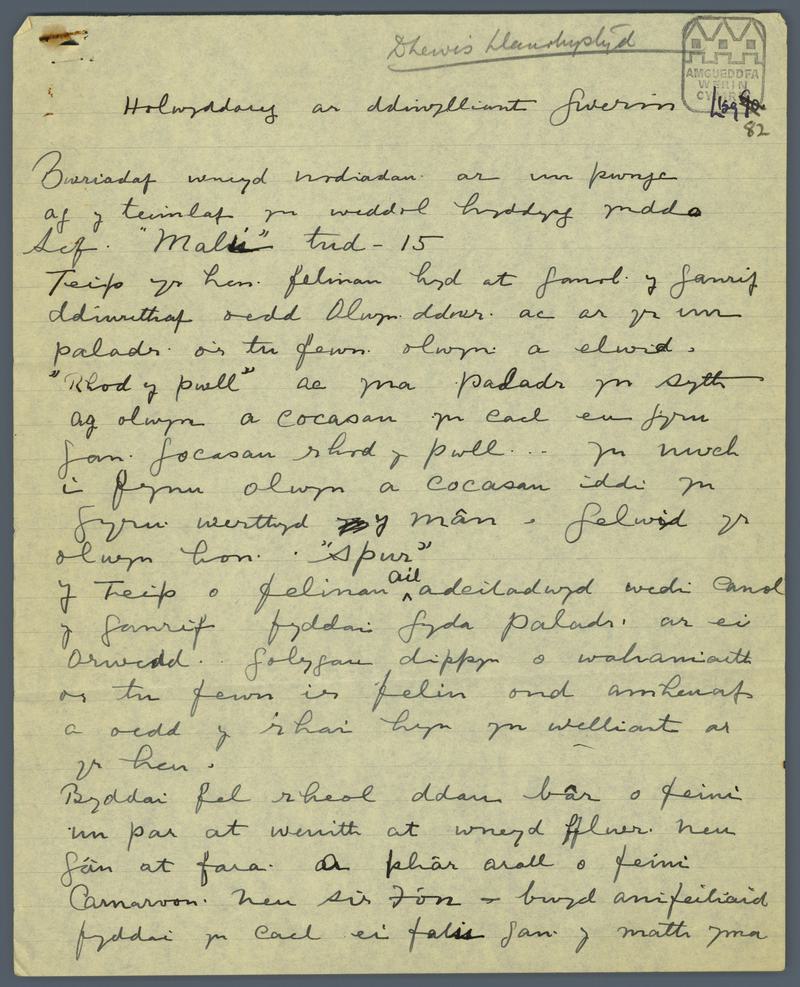 D Lewis Llanrhystyd
AMGUEDDFA
WERIN
Holwyddoreg ar ddiwylliant Gwerin
82
Bwriadaf wneyd nodiadau ar un pwngc
ag y teimlaf yn weddol hyddysg ynddo
Sef. "Malu" tud - 15
Teip yr hen felinau hyd at ganol y ganrif
ddiwethaf oedd Olwyn ddwr. ac ar yr un
paladr o'r tu fewn olwyn a elwid.
"Rhod y pwll" ac yna paladr yn syth
ag olwyn a cocasau yn cael eu gyru
gan. gocasau rhod y pwll... yn uwch
i fynu olwyn a cocasau iddi yn
gyru werthyd y mân. Gelwid yr
olwyn hon. "Spur"
Y Teip o felinau ail adeiladwyd wedi Canol
y ganrif fyddai gyda Paladr ar ei
Orwedd. Golygau dippyn o wahaniaeth
o'r tu fewn i'r felin ond amheuaf
a oedd y rhai hyn yn welliant ar
yr hen.
Byddai fel rheol ddau bâr o feini
un par at wenith at wneyd fflwr. neu
gân at fara. A phâr arall o feini
Carnarvon. neu Sir Fôn - bwyd anifeiliaid
fyddai yn cael ei falu gan y math yma